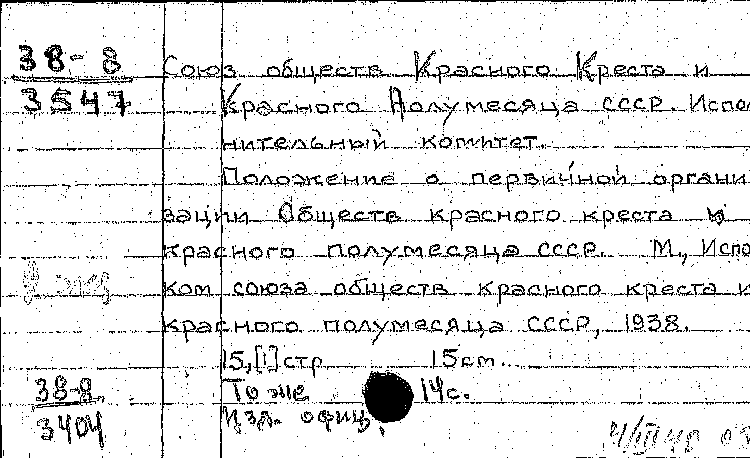 38-8 Союз обществ Красного Креста и
3547 Красного Полумесяца СССР. Испо
нительный комитет.
Положение о первичной органи
зации Обществ красного креста и
красного полумесяца СССР. М., Испо
ком союза обществ красного креста и
красного полумесяца СССР, 1938.
15,[1] стр 15 см.
38-8 То же 14 с.
3404 Изд. офиц.